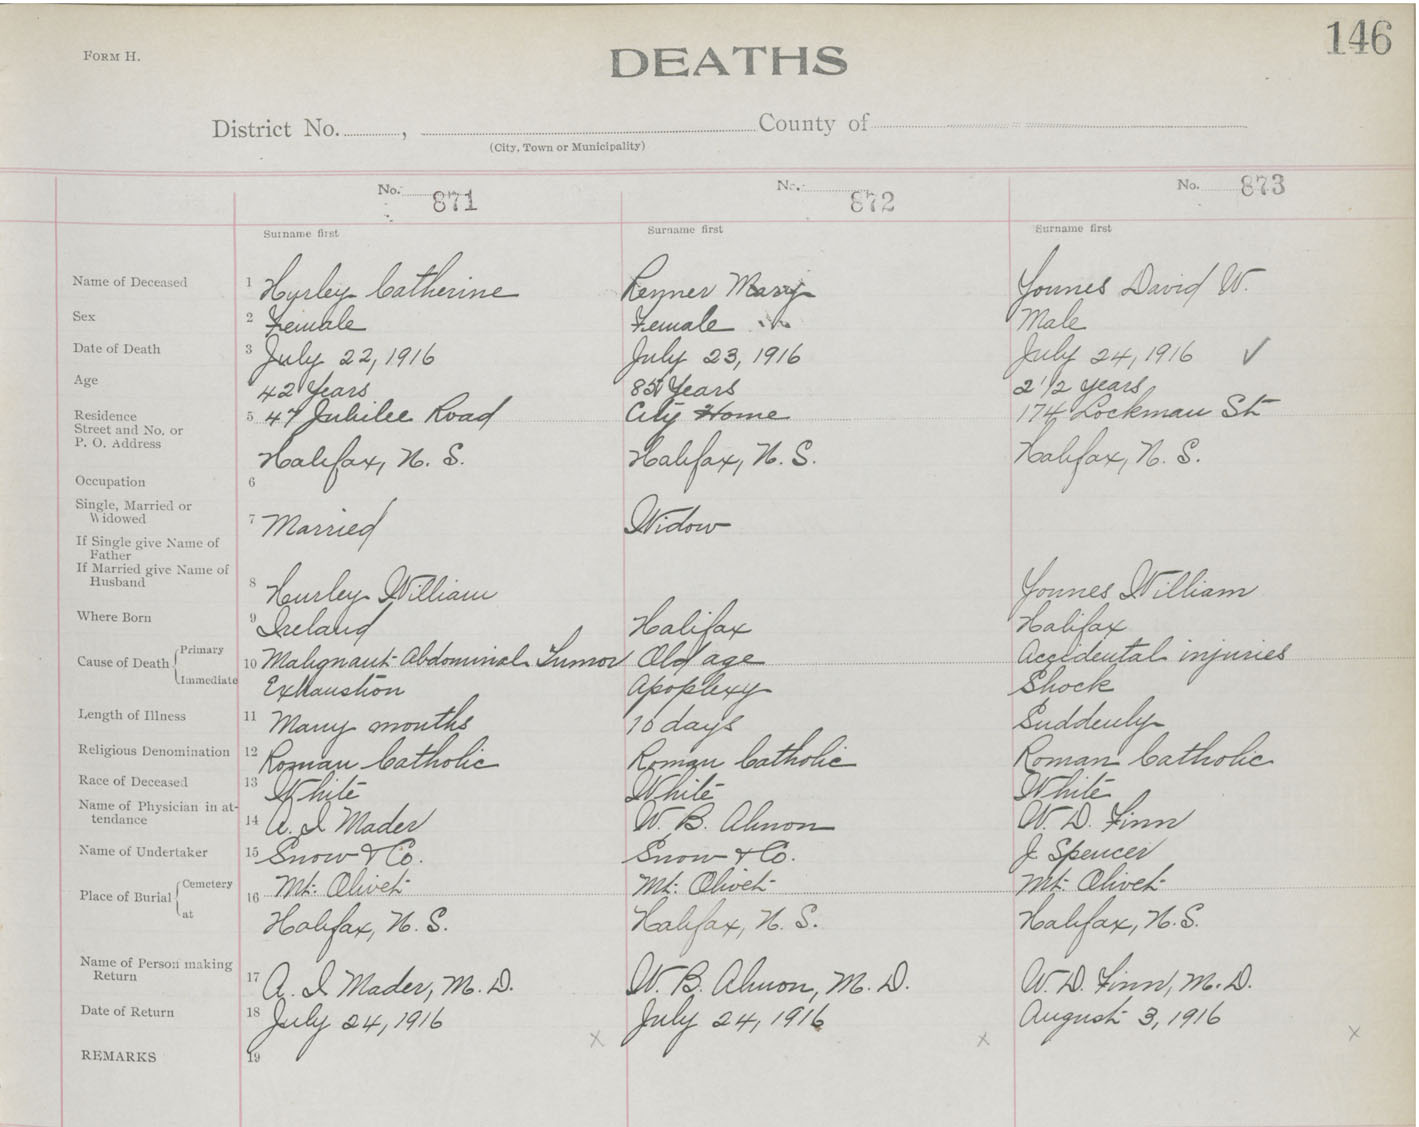 146
FORM H.
DEATHS
District No. , County of
(City, Town or Municipality)
No. 871 No. 872 No. 873
Surname first Surname first Surname first
Name of Deceased 1 Hurley Catherine Renner Mary Younes David W.
Sex 2 Female Female Male
Date of Death 3 July 22, 1916 July 23, 1916 July 24, 1916 ✓
Age 42 Years Years 2 1/2 years
Residence 5 47 Jubilee Road City Home 174 Lockman St
Street and No. or
P. O. Address Halifax, N. S. Halifax, N. S. Halifax, N. S.
Occupation 6
Single, Married or
Widowed 7 Married Widow
If Single give Name of
Father
If Married give Name of
Husband 8 Hurley William Younes William
Where Born 9 Ireland Halifax Halifax
Cause of Death Primary 10 Malignant Abdominal Tumor Old age Accidental injuries
Immediate Exhaustion Apoplexy Shock
Length of Illness 11 Many months 10 days Suddenly
Religious Denomination 12 Roman Catholic Roman Catholic Roman Catholic
Race of Deceased 13 White White White
Name of Physician in at-
tendance 14 A. I Mader W. B. Almon W. D. Finn
Name of Undertaker 15 Snow & Co. Snow & Co. J Spencer
Place of Burial Cemetery 16 Mt. Olivet Mt. Olivet Mt. Olivet
at Halifax, N. S. Halifax, N. S. Halifax, N. S.
Name of Person making
Return 17 A. I Mader, M. D. W. B. Almon, M. D. W. D. Finn, M. D.
Date of Return 18 July 24, 1916 July 24, 1916 August 3, 1916
x x x
REMARKS 19